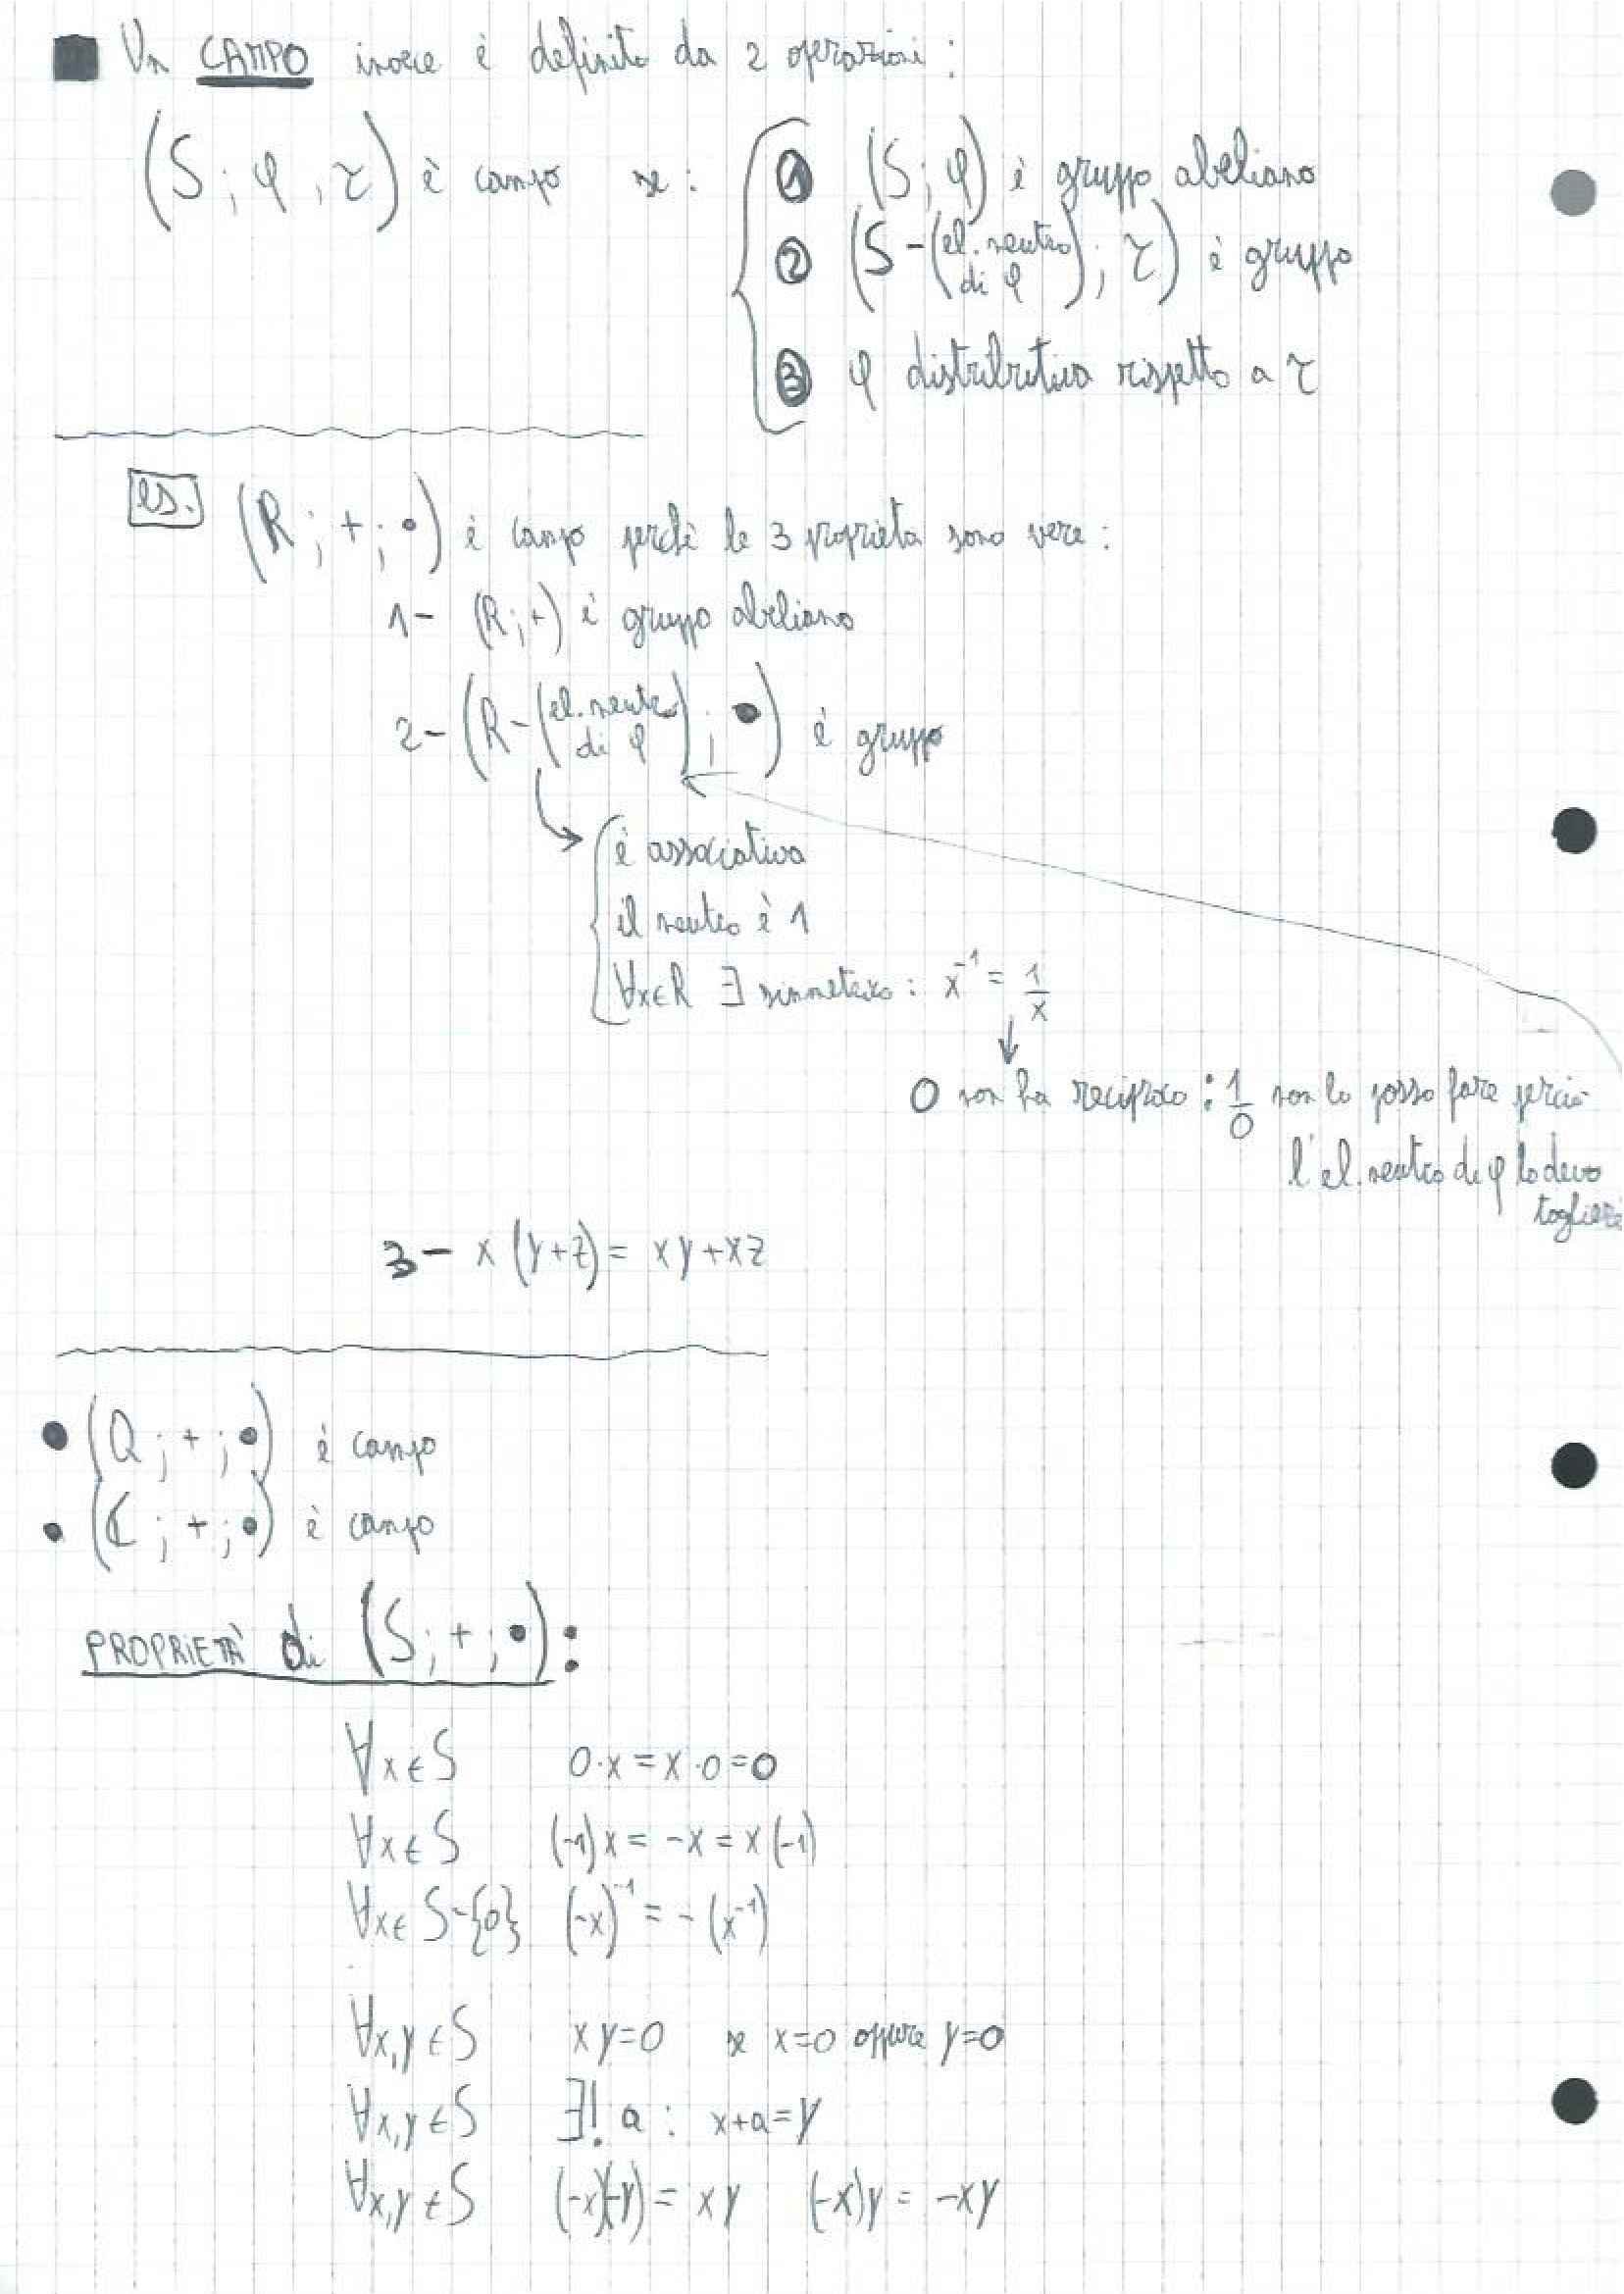 Un CAMPO invece è definito da 2 operazioni:
(S ; φ , τ) è campo se:
① (S; φ) è gruppo abeliano
② (S - (el. neutro di φ) ; τ) è gruppo
③ φ distributiva rispetto a τ
es. (R ; + ; •) è campo perchè le 3 proprietà sono vere:
1- (R; +) è gruppo abeliano
2- (R - (el. neutro di φ) ; •) è gruppo
è associativa
il neutro è 1
∀x∈R ∃ simmetrico : x⁻¹ = 1/x
0 non ha reciproco : 1/0 non lo posso fare perciò
l'el. neutro di φ lo devo
togliere
3- x (y+z) = xy + xz
• (Q ; + ; •) è campo
• (ℂ ; + ; •) è campo
PROPRIETÀ di (S ; + ; •) :
∀x∈S 0·x = x·0 = 0
∀x∈S (-1)x = -x = x(-1)
∀x∈ S-{0} (-x)⁻¹ = -(x⁻¹)
∀x,y∈S xy=0 se x=0 oppure y=0
∀x,y∈S ∃! a : x+a=y
∀x,y∈S (-x)(-y) = xy (-x)y = -xy